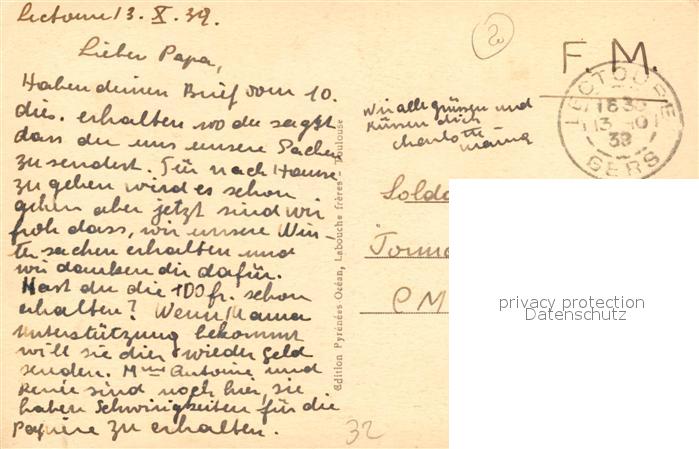 Lectoure 13. X. 39.
Lieber Papa,
Haben deinen Brief vom 10.
dis. erhalten wo du sagst
dass du uns unsere Sachen
zusendest. Für nach Hause
zu gehen wird es schon
gehen aber jetzt sind wir
froh dass, wir unsere Win-
tersachen erhalten und
wir danken dir dafür.
Hast du die 100 fr. schon
erhalten? Wenn Mama
Unterstützung bekommt
will sie dir wieder Geld
senden. Mme Antoine und
Renée sind noch hier, sie
haben Schwirigkeiten für die
Papiere zu erhalten.
Edition Pyrénées-Océan, Labouche frères - Toulouse
20
F. M.
LECTOURE
18 35
13 10
39
GERS
Wir alle grüssen und
küssen dich
Charlotte
Mama
Solda
C M
privacy protection
Datenschutz
32